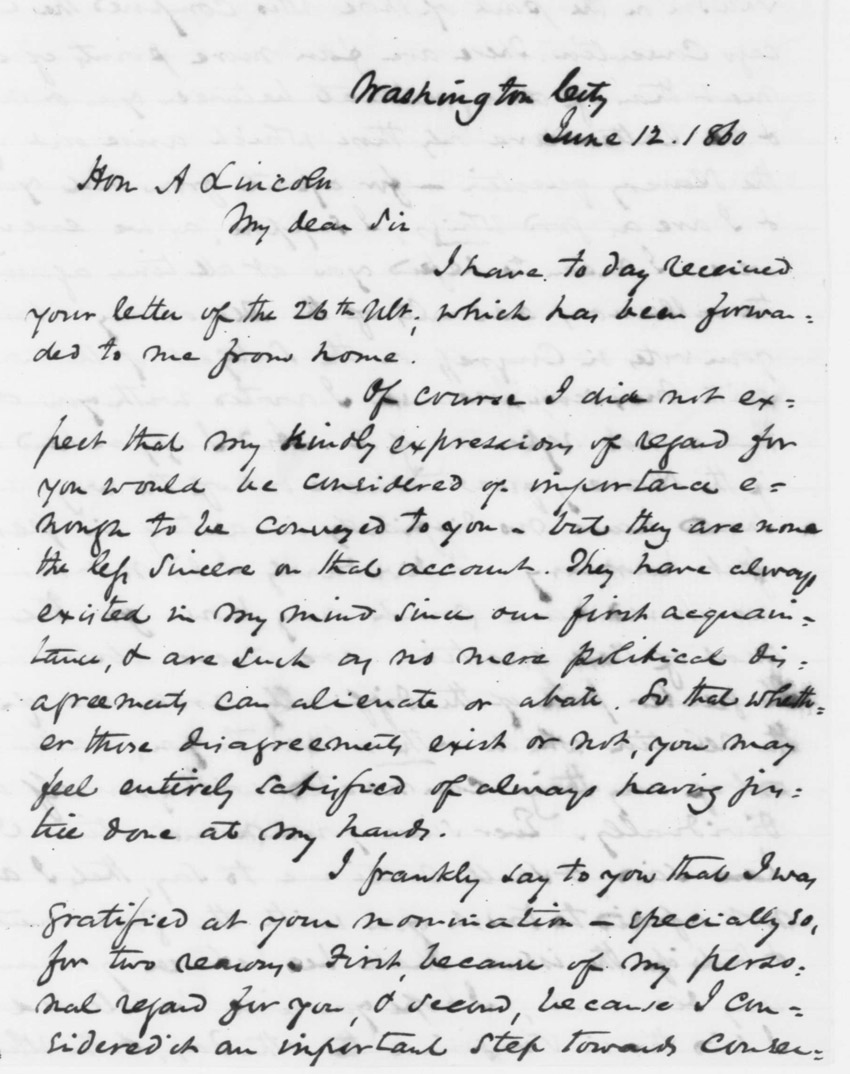 Washington City
June 12. 1860
Hon A Lincoln
My dear Sir
I have to day received
your letter of the 26th Ult; which has been forwar=
ded to me from home.
Of course I did not ex=
pect that my kindly expressions of regard for
you would be considered of importance e=
nough to be conveyed to you - but they are none
the less sincere on that account. They have always
existed in my mind since our first acquain=
tance, & are such as no mere political dis=
agreements can alienate or abate. So that wheth=
er those disagreements exist or not, you may
feel entirely satisfied of always having jus=
tice done at my hands.
I frankly say to you that I was
gratified at your nomination - specially so,
for two reasons. First, because of my perso=
nal regard for you, & second, because I con=
sidered it an important step towards conser=